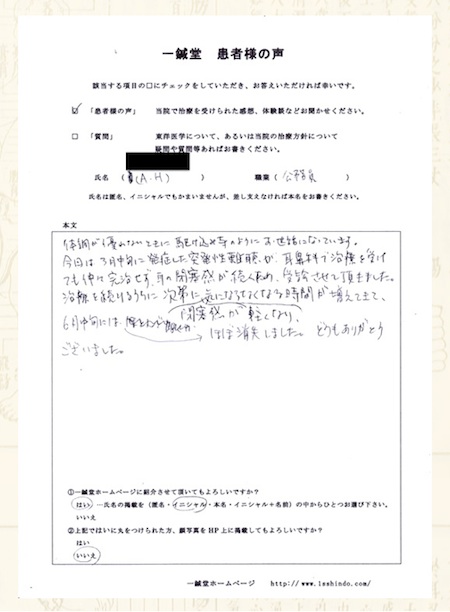 一鍼堂 患者様の声
該当する項目の□にチェックをしていただき、お答えいただければ幸いです。
☑ 「患者様の声」 当院で治療を受けられた感想、体験談などお聞かせください。
□ 「質問」 東洋医学について、あるいは当院の治療方針について
疑問や質問等あればお書きください。
氏名 ( (A.H) ) 職業 ( 公務員 )
氏名は匿名、イニシャルでもかまいませんが、差し支えなければ本名をお書きください。
本文
体調が優れないときに駆け込み寺のようにお世話になっています。
今回は3月中旬に発症した突発性難聴が、耳鼻科で治療を受け
ても完治せず、耳の閉塞感が 受診させて頂きました。
治療を続けるうちに次第に気にならなくなる時間が増えてきて、
6月中旬には、閉塞感が軽くなり、
ほぼ消失しました。どうもありがとう
ございました。
①一鍼堂ホームページに紹介させて頂いてもよろしいですか?
はい …氏名の掲載を(匿名・イニシャル・本名・イニシャル+名前)の中からひとつお選び下さい。
いいえ
②上記ではいに丸をつけられた方、顔写真をHP上に掲載してもよろしいですか?
はい
いいえ
一鍼堂ホームページ http://www.1sshindo.com/